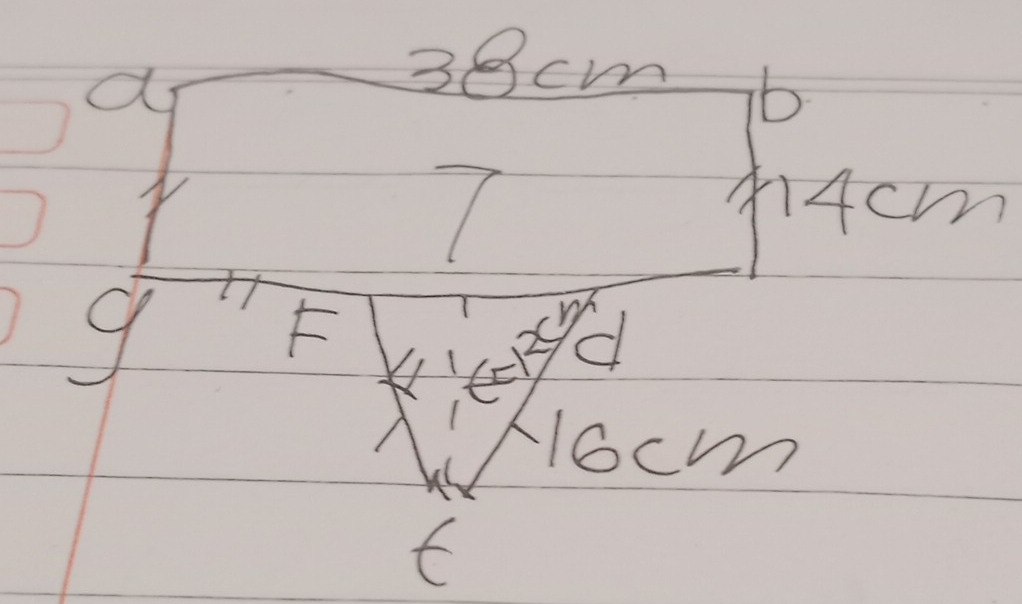 a 38cm b
7 14cm
g F 12cm d
16cm
E